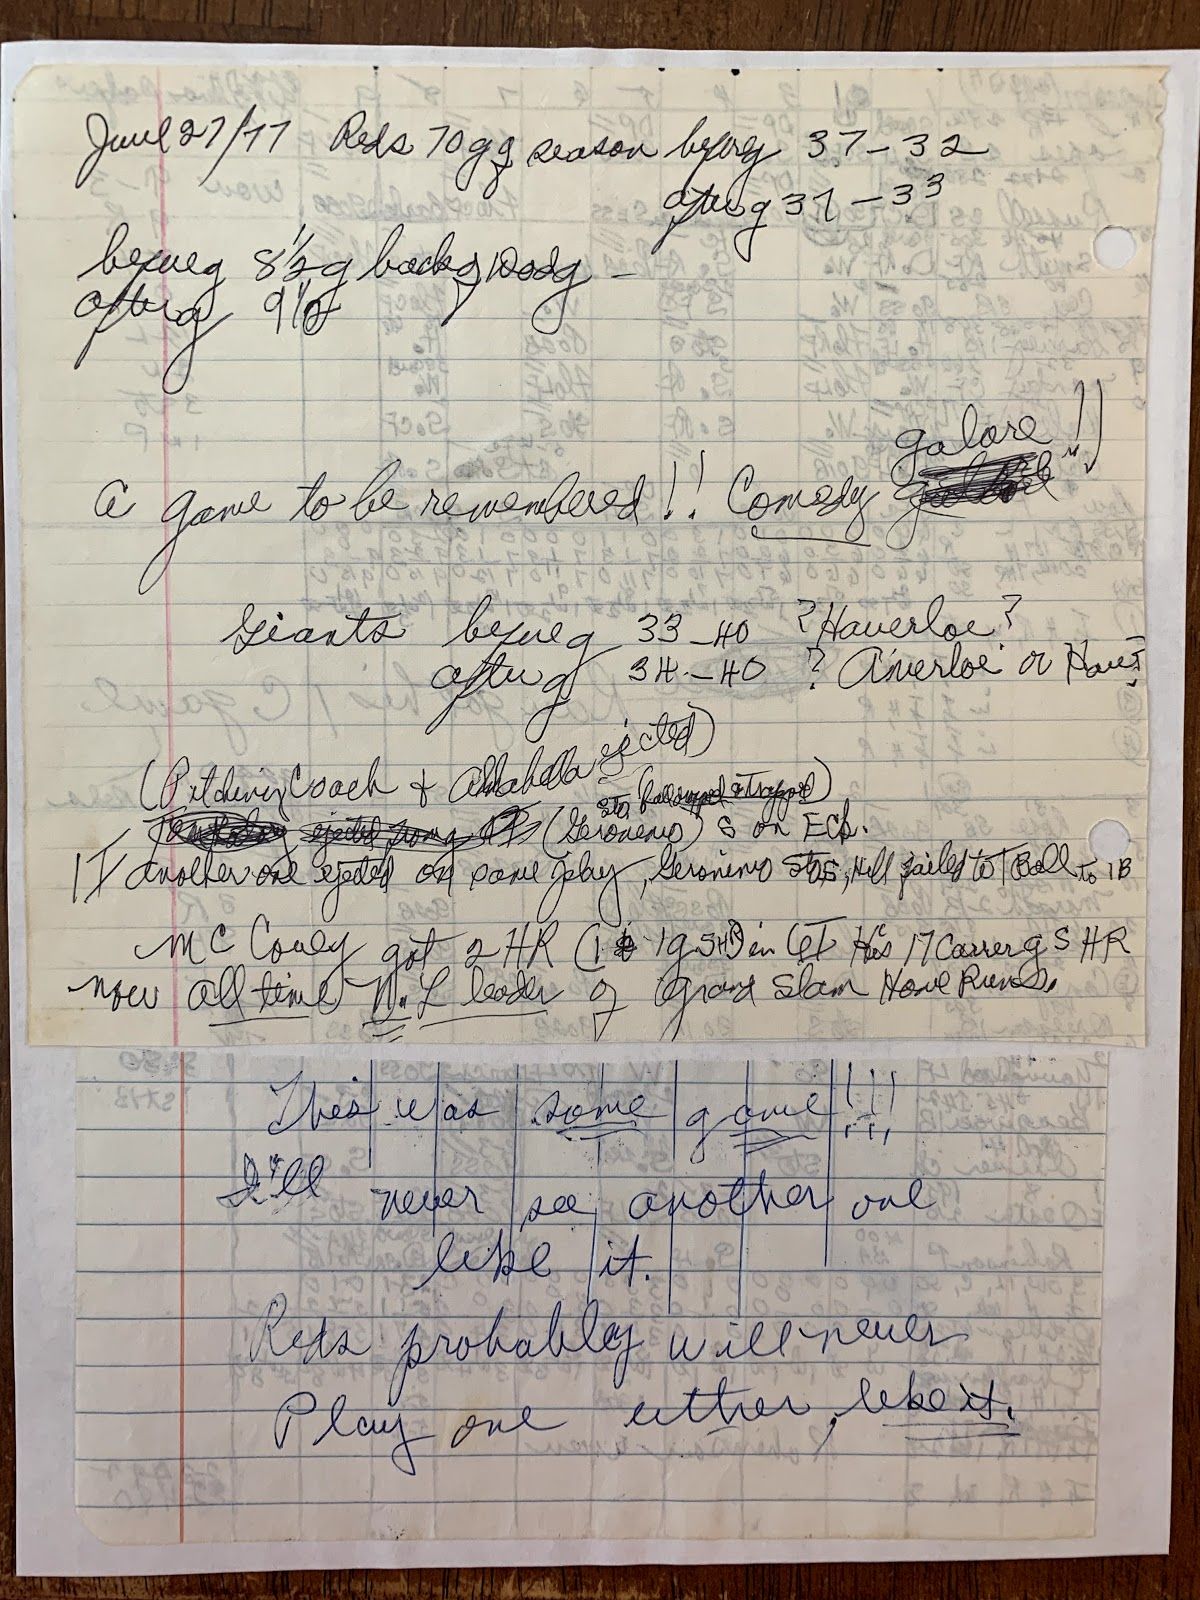 June 27/77 Reds 70 g g season before g 37-32
after g 37-33
before g 8 1/2 g back g Dodg -
after g 9 1/2
galore!!
A game to be remembered!! Comedy
Giants before g 33-40 ?Haverloe?
after g 34-40 ? Averloe or Have?
(Pitching Coach & Altabella ejected)
(Geronimo) S on
1 I another one ejected on same play, Geronimo failed to Ball to 1B
McCovey got 2 HR (1 1 g S HR) in 6 I Has 17 Career g S HR
now all time N.L leader of Grand Slam Home Runs.
This was some game!!!
I'll never see another one
like it.
Reds probabley will never
Play one either, like it.